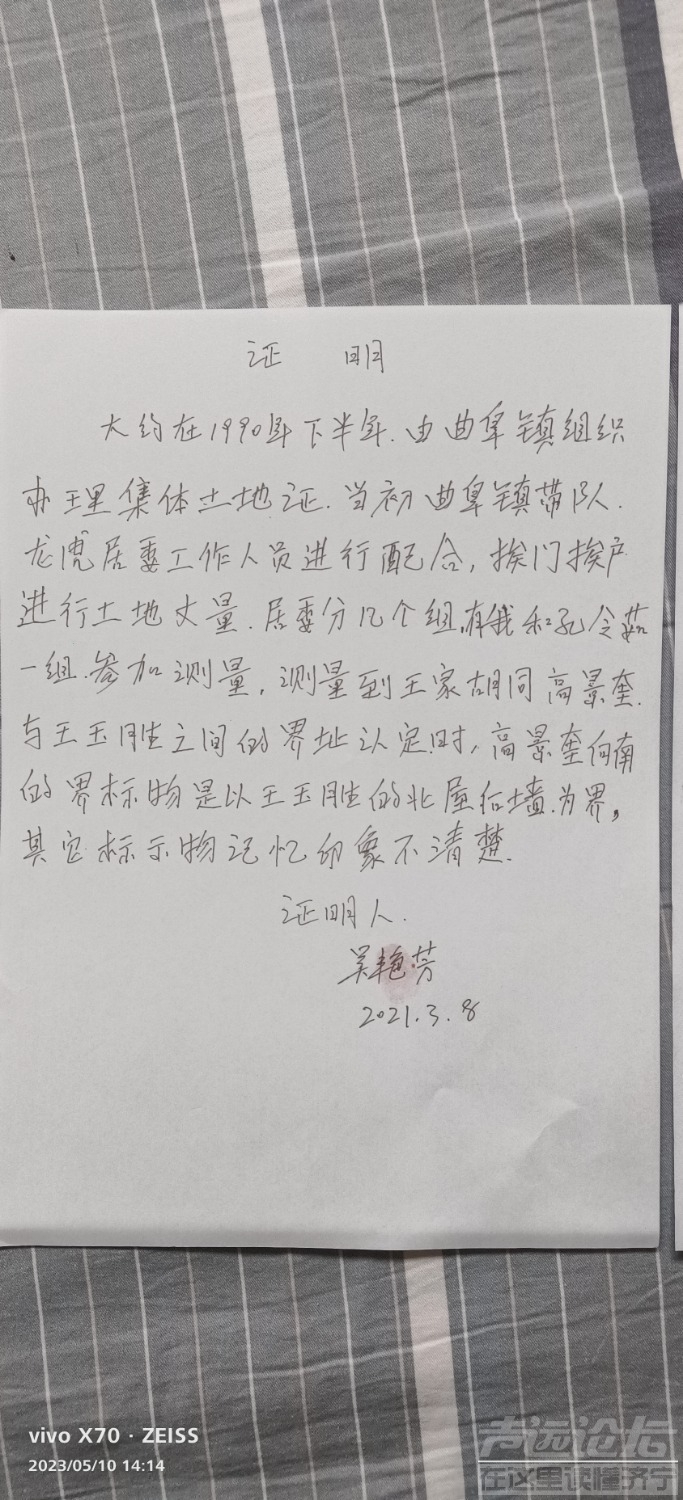 证 明
大约在1990年下半年.由曲阜镇组织
办理集体土地证.当初曲阜镇带队.
龙虎居委工作人员进行配合,挨门挨户
进行土地丈量.居委分几个组,有我和孔令茹
一组.参加测量,测量到王家胡同高景奎.
与王玉胜之间的界址认定时,高景奎向南
的界标物是以王玉胜的北屋后墙.为界,
其它标示物记忆印象不清楚.
证明人.
吴艳芳
2021.3.8
vivo X70 · ZEISS
2023/05/10 14:14
声远论坛
在这里读懂济宁